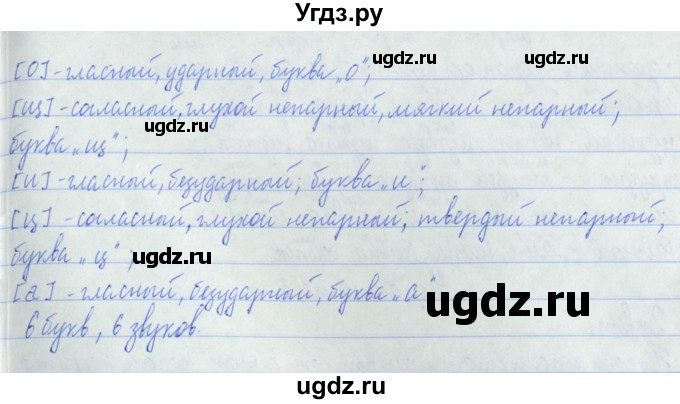 Угдз.ру
[О]-гласный, ударный, буква „о";
[щ]-согласный, глухой непарный, мягкий непарный;
буква „щ";
[и]-гласный, безударный; буква „и";
[ц]-согласный, глухой непарный; твердый непарный;
буква „ц";
[а]-гласный, безударный, буква „а"
6 букв, 6 звуков.
ugdz.ru
ugdz.ru
ugdz.ru
ugdz.ru
ugdz.ru
ugdz.ru
ugdz.ru